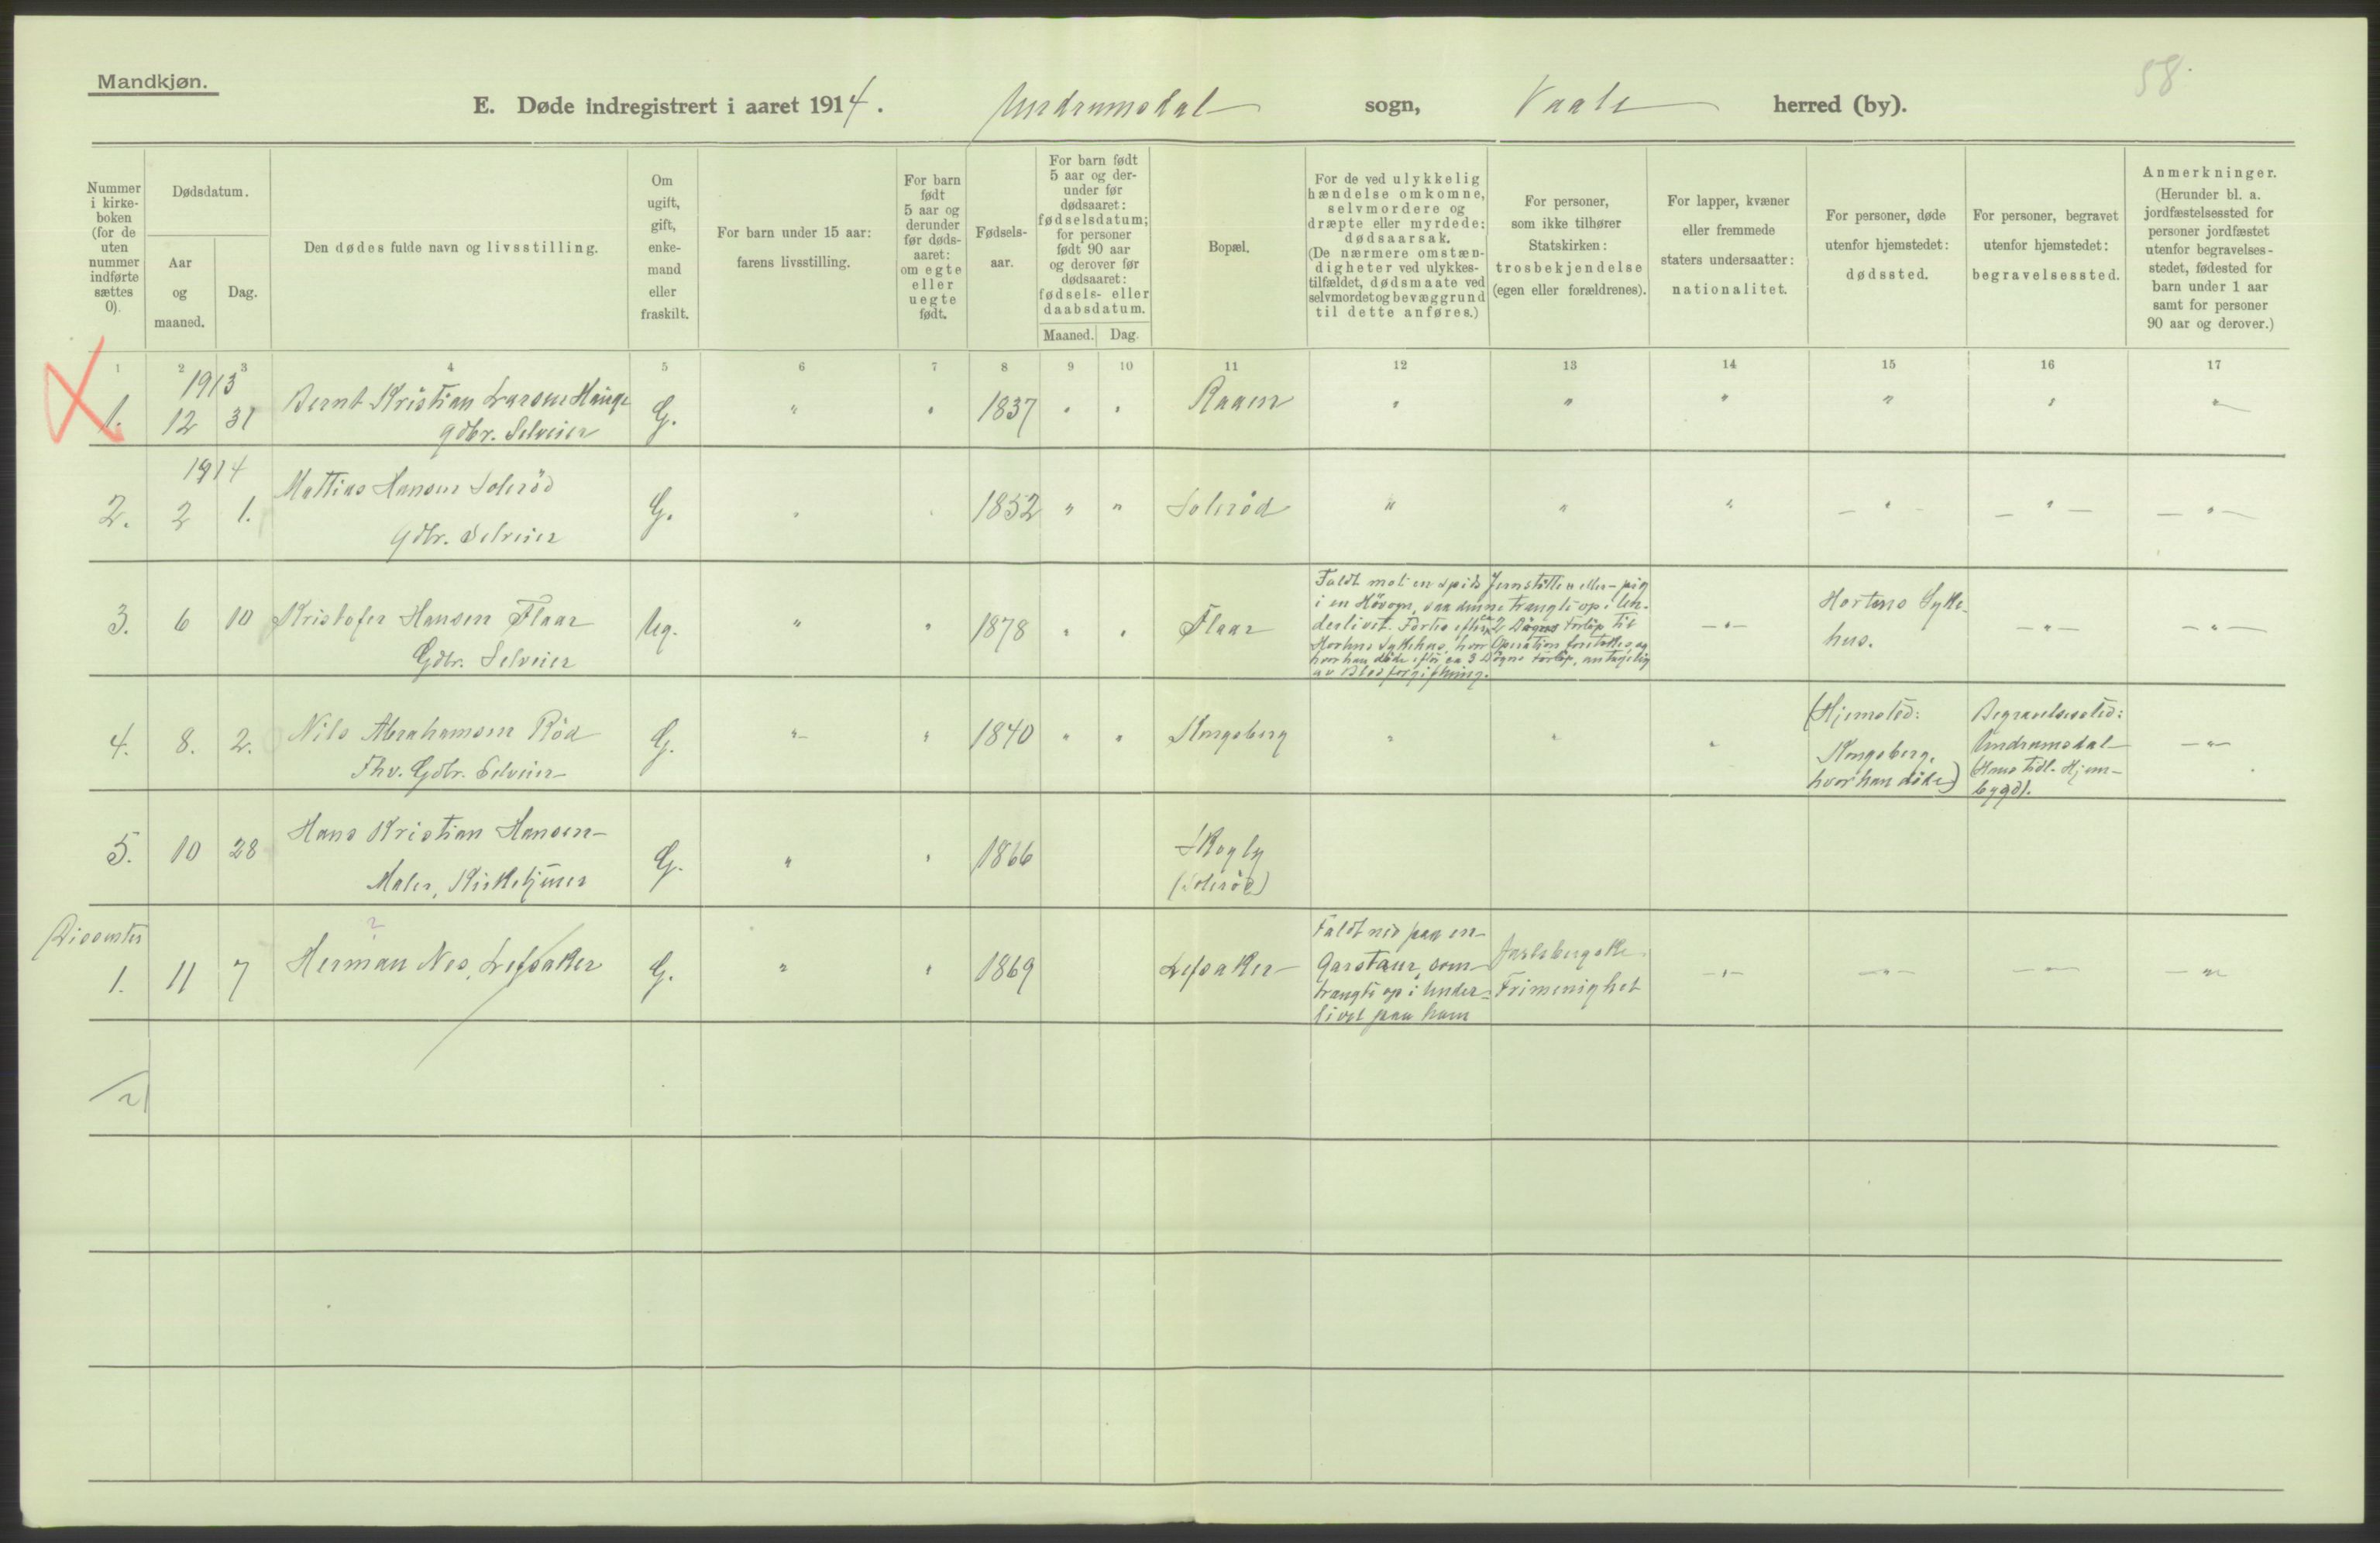 Mandkjøn.
58.
E. Døde indregistrert i aaret 1914. Undrumsdal sogn, Vaale herred (by).
Nummer i kirke-boken (for de uten nummer indførte sættes 0).
Dødsdatum.
Aar og maaned.
Dag.
Den dødes fulde navn og livsstilling.
Om ugift, gift, enke-mand eller fraskilt.
For barn under 15 aar: farens livsstilling.
For barn født 5 aar og derunder før døds-aaret: om egte eller uegte født.
Fødsels-aar.
For barn født 5 aar og der-under før dødsaaret: fødselsdatum; for personer født 90 aar og derover før dødsaaret: fødsels- eller daabsdatum.
Maaned.
Dag.
Bopæl.
For de ved ulykkelig hændelse omkomne, selvmordere og dræpte eller myrdede: dødsaarsak. (De nærmere omstæn-digheter ved ulykkes-tilfældet, dødsmaate ved selvmordet og bevæggrund til dette anføres.)
For personer, som ikke tilhører Statskirken: trosbekjendelse (egen eller forældrenes).
For lapper, kvæner eller fremmede staters undersaatter: nationalitet.
For personer, døde utenfor hjemstedet: dødssted.
For personer, begravet utenfor hjemstedet: begravelsessted.
Anmerkninger. (Herunder bl. a. jordfæstelsessted for personer jordfæstet utenfor begravelses-stedet, fødested for barn under 1 aar samt for personer 90 aar og derover.)
1 2 3 4 5 6 7 8 9 10 11 12 13 14 15 16 17
1913
1. 12 31 Bernt Kristian Larsen Hauge G. " " 1837 " " Raaen " " " " " "
gdbr. Selveier
1914
2. 2 1. Mattias Hansen Solerød G. " " 1852 " " Solerød " " " " " "
gdbr. Selveier
3. 6 10 Kristofer Hansen Flaar Ug. " " 1878 " " Flaar
Gdbr. Selveier
Faldt mot en spids Jernstötte eller -pig
i en Høvogn, saa denne trængte op i Un-
derlivet. Førtes efter ca 2 Døgns Forløp til
Hortens Sykehus, hvor Operation foretokes, og
hvor han døde efter ca 3 Døgns Forløp, antagelig
av Blodforgiftning.
—"— Hortens Syke-
hus.
—"— —"—
4. 8. 2. Nils Abrahamsen Röd G. " " 1840 " " Kongsberg " " "
Fhv. Gdbr. Selveier
(Hjemsted:
Kongsberg,
hvor han døde)
Begravelsessted:
Undrumsdal
(Hans tidl. Hjem-
bygd).
—"—
5. 10 28 Hans Kristian Hansen G. " " 1866 Skogly
Maler, Kirketjener (Solerød)
Dissenter
?
1. 11 7 Herman Nes, Lefsaker G. " " 1869 Lefsaker
Faldt ned paa en
Garstaur, som
trængte op i Under-
livet paa ham
Jarlsbergske
Frimenighet
—"— —"— —"— —"—